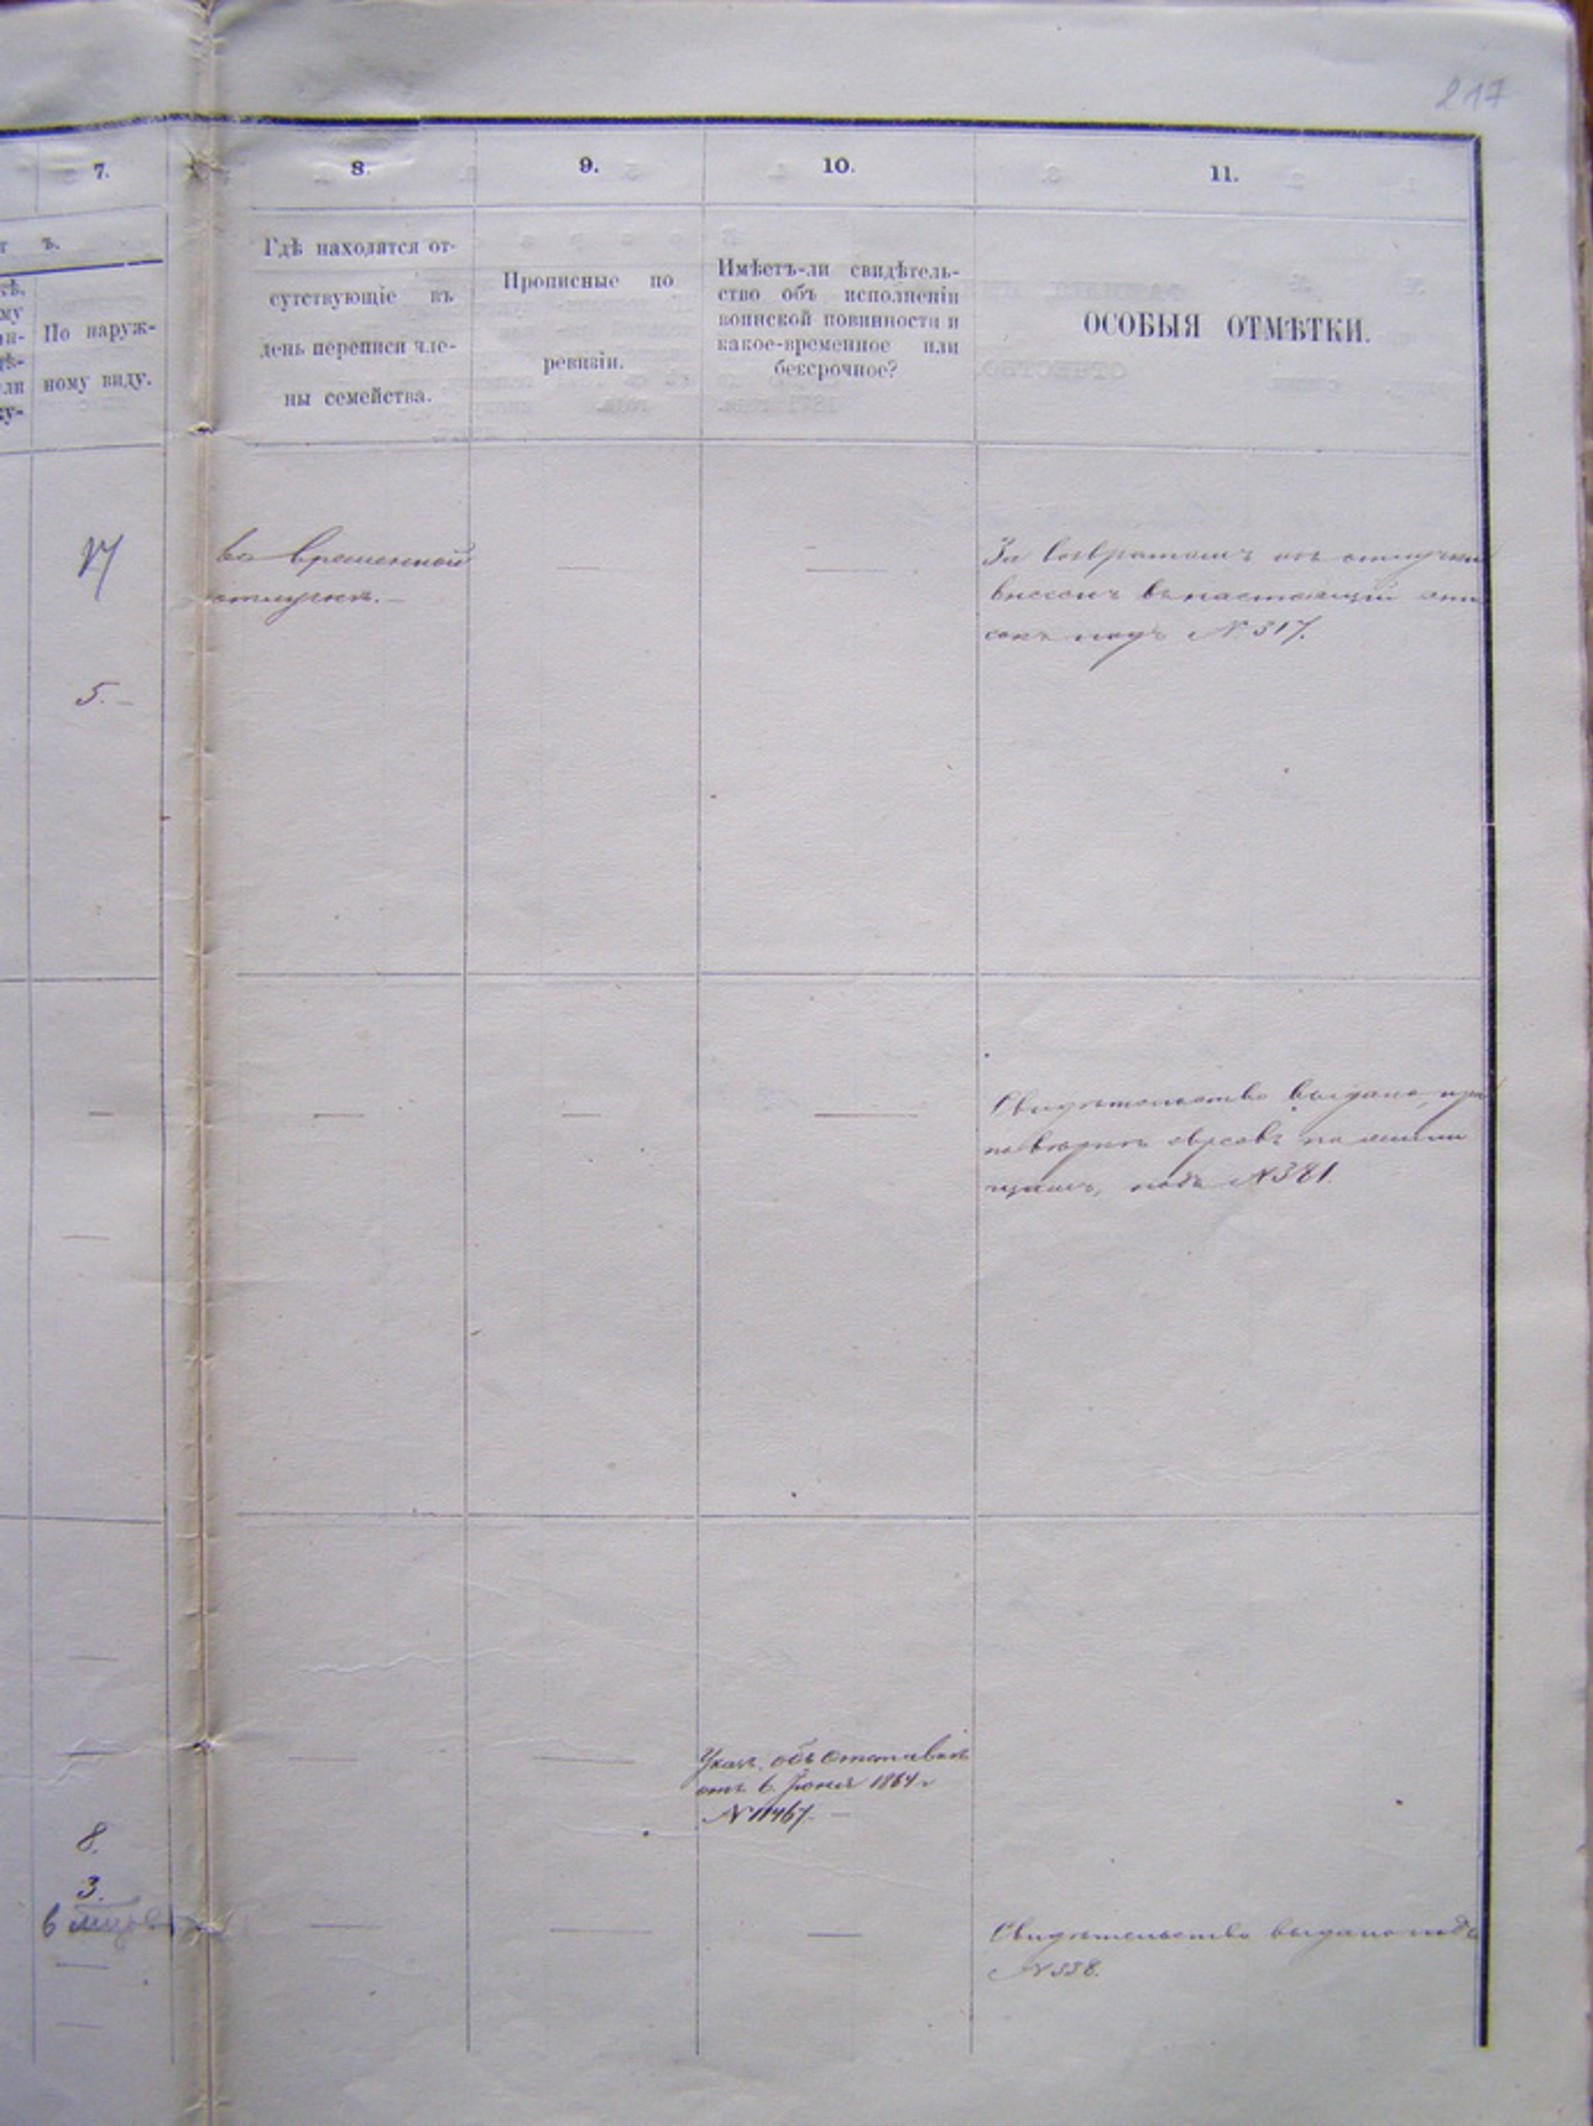 217
7. 8. 9. 10. 11.
ъ.
По наруж-
ному виду.
Гдѣ находятся от-
сутствующіе въ
день переписи чле-
ны семейства.
Прописные по
ревизіи.
Имѣетъ-ли свидѣтель-
ство объ исполненіи
воинской повинности и
какое-временное или
бессрочное?
ОСОБЫЯ ОТМѢТКИ.
17
во временной
отлучкѣ. —
За возвратомъ изъ отлучки
внесенъ въ настоящій спи
сокъ подъ № 317.
5. —
Свидѣтельство выдано, при
повѣркѣ
подъ № 381.
Указъ объ отставкѣ
отъ 6 Іюня 1864 г
№ 11467. —
8.
3.
6 мѣс
Свидѣтельство выдано подъ
№ 338.